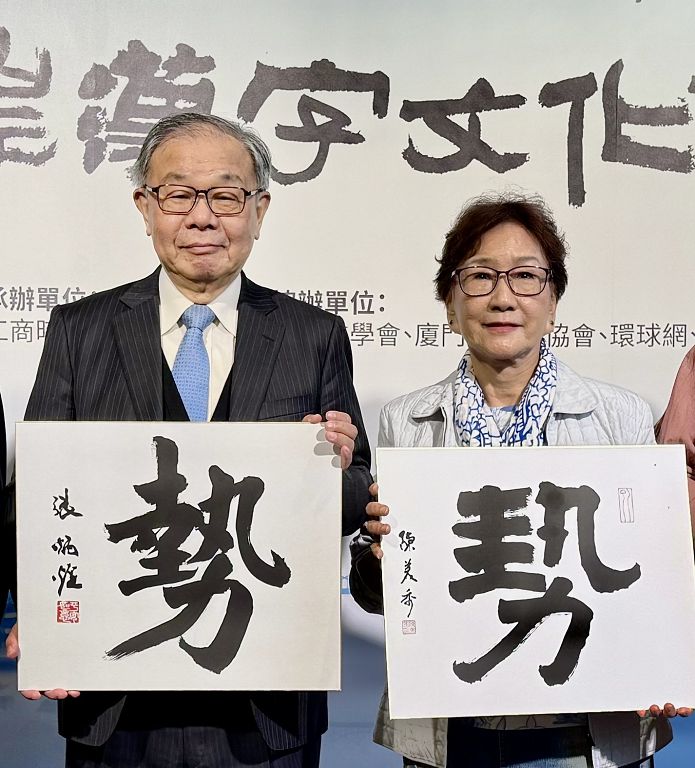 漢字文化
辦單位
辦單位：
工商時
學會、廈門 協會、環球網、
勢
張炳煌
勢
陳美秀